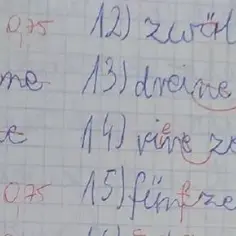 0,75 12) zwöl
me 13) dreine
e 14) viere ze
0,75 15) fünfze